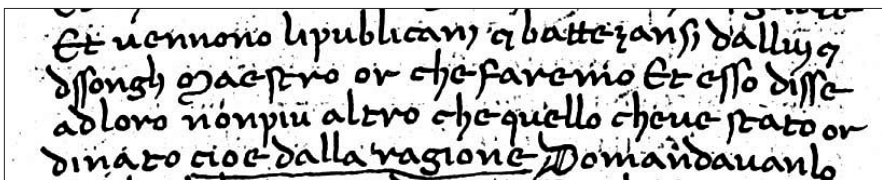 Et vennono lipublicani ⁊ battezansi dallui ⁊
dssongli Maestro or che faremo Et esso disse
adloro nonpiu altro che quello cheve stato or
dinato cioe dalla ragione Domandavanlo